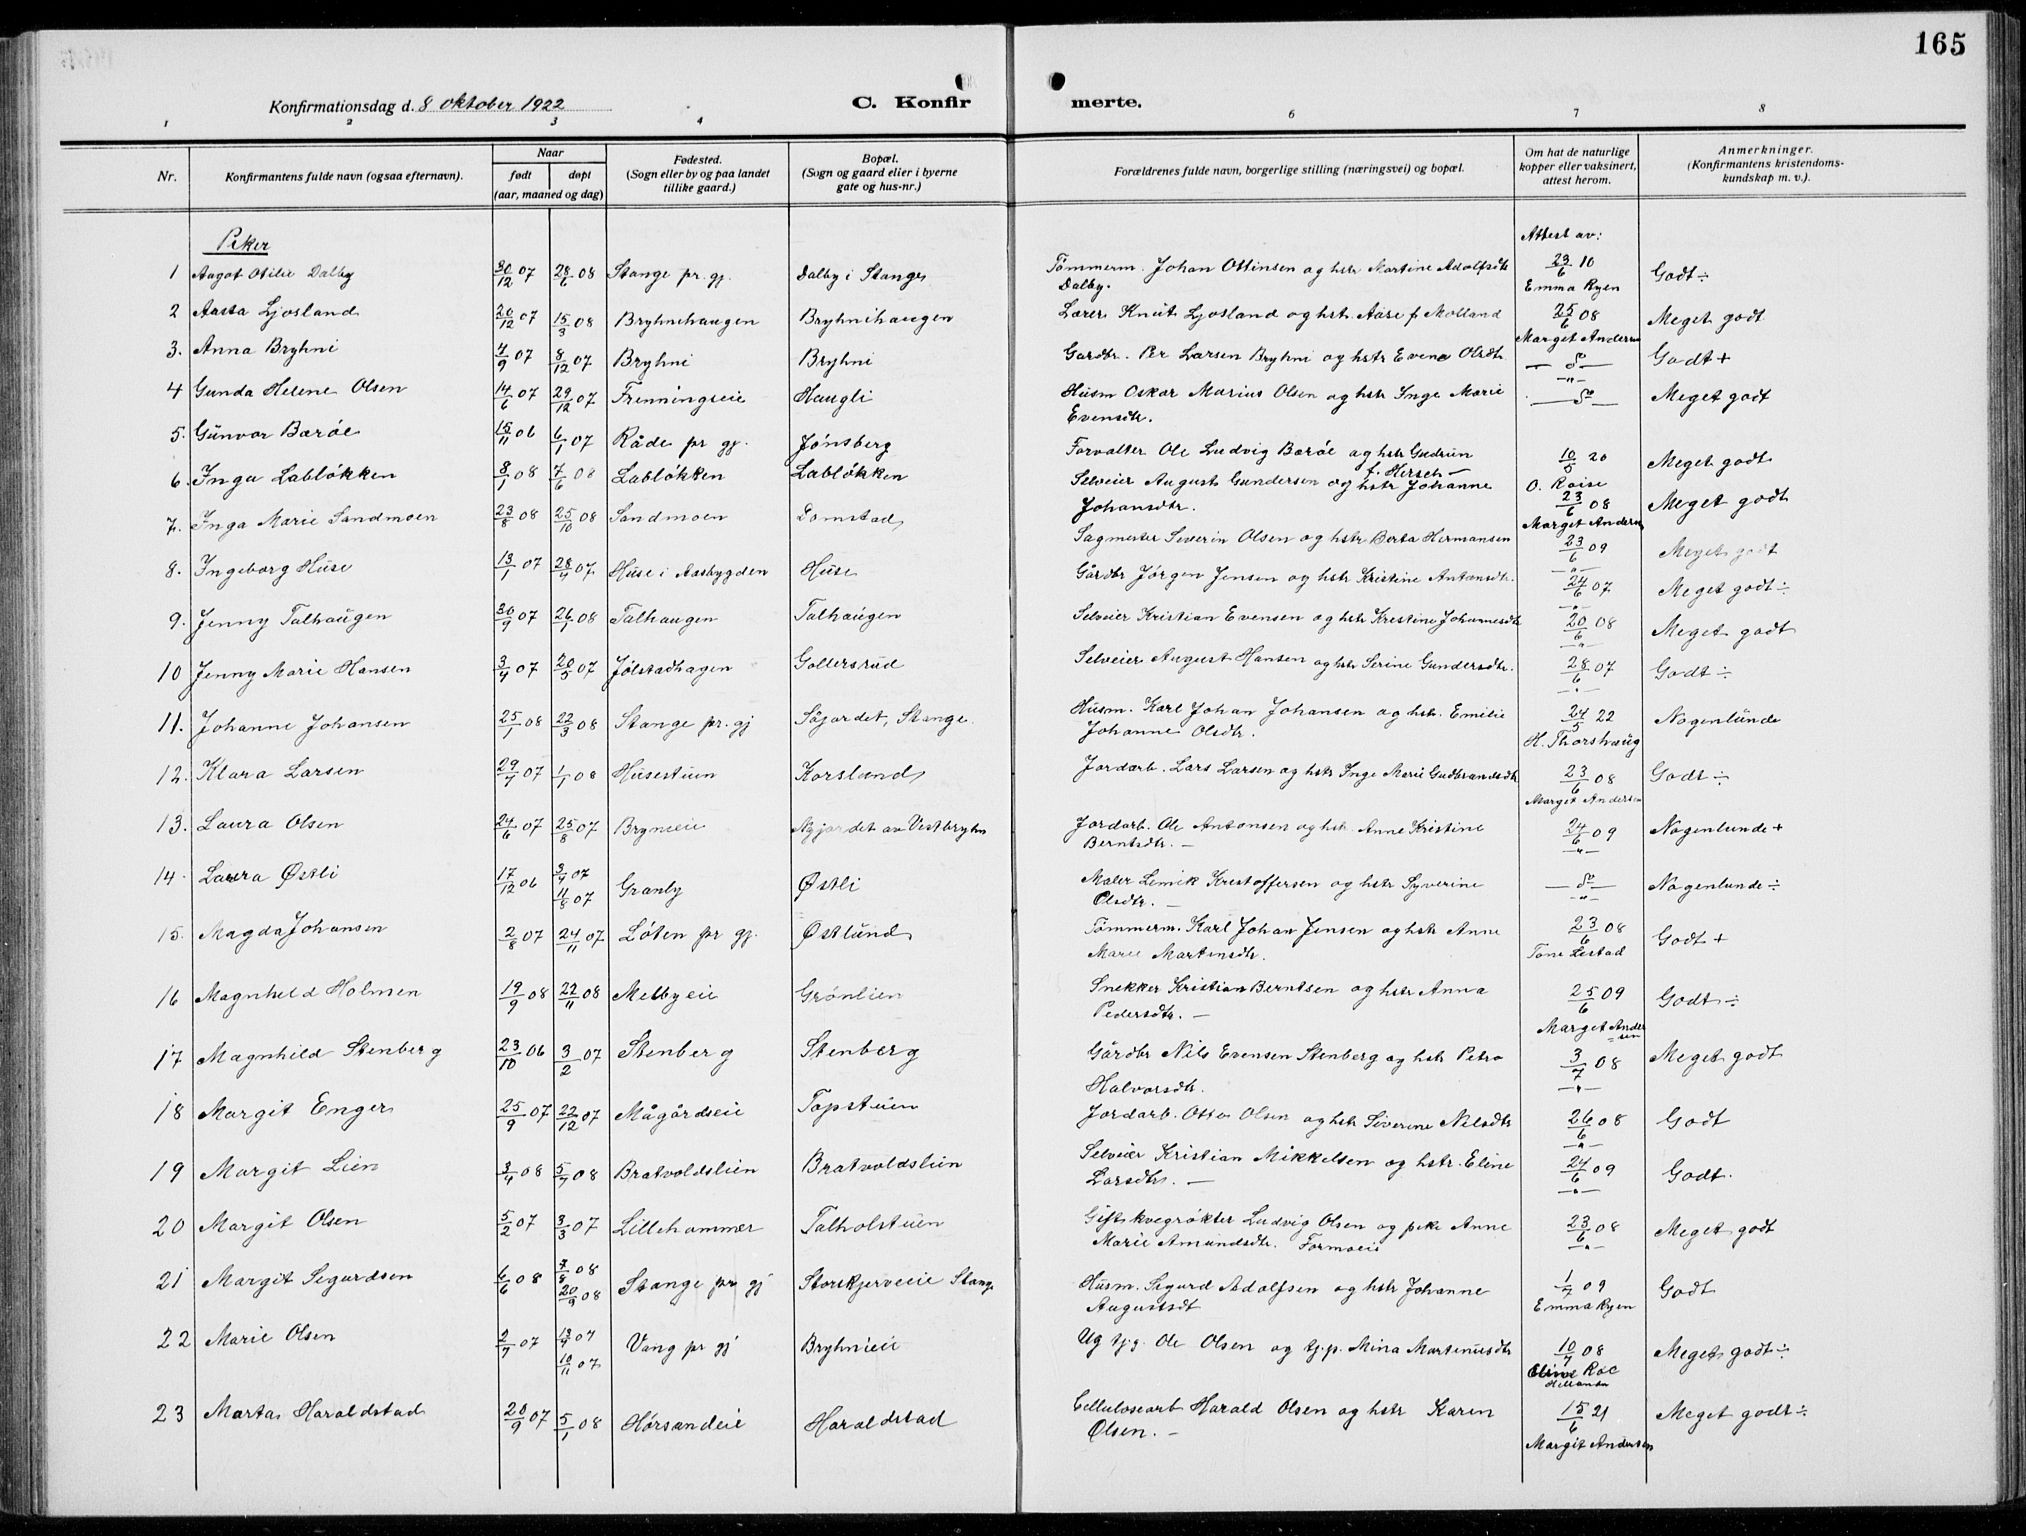 165
Konfirmationsdag d. 8 oktober 1922
C. Konfirmerte.
1 2 3 4 6 7 8
Nr. | Konfirmantens fulde navn (ogsaa efternavn). | Naar født | døpt (aar, maaned og dag) | Fødested. (Sogn eller by og paa landet tillike gaard.) | Bopæl. (Sogn og gaard eller i byerne gate og hus-nr.) | Forældrenes fulde navn, borgerlige stilling (næringsvei) og bopæl. | Om hat de naturlige kopper eller vaksinert, attest herom. | Anmerkninger. (Konfirmantens kristendoms-kundskap m. v.).
Piker | Attest av:
1 Aagot Otilie Dalby 30/12 07 28/6 08 Stange pr. gj. Dalby i Stange Tømmerm. Johan Ottinsen og hstr Martine Adolfsdtr Dalby. 23/6 10 Emma Ryen Godt ÷
2 Aasta Ljosland 20/12 07 15/3 08 Bryhnihaugen Bryhnihaugen Lærer Knut Ljosland og hstr. Aase f Molland 25/6 08 Marget Andersen Meget godt
3. Anna Bryhni 4/9 07 8/12 07 Bryhni Bryhni Gardbr. Per Larsen Bryhni og hstr Evene Olsdtr — do — Godt +
4 Gunda Helene Olsen 14/6 07 29/12 07 Frenningseie Haugli Husm Oskar Marius Olsen og hstr Inge Marie Evensdtr. — do — Meget godt
5. Gunvor Barøe 15/11 06 6/1 07 Råde pr gj. Jønsberg Forvalter Ole Ludvig Barøe og hstr Gudrun f. Hersch — 10/5 20 O. Roise Meget godt
6. Inga Labløkken 8/1 08 7/6 08 Labløkken Labløkken Selveier August Gundersen og hstr Johanne Johansdtr. 23/6 08 Marget Andersen Meget godt
7. Inga Marie Sandmoen 23/8 08 25/10 08 Sandmoen Lomstad Sagmester Severin Olsen og hstr Berta Hermansen 23/6 09 —"— Meget godt
8. Ingeborg Huse 13/1 07 28/4 07 Huse i Aasbygden Huse Gårdbr Jørgen Jensen og hstr Kristine Antonsdtr. 24/6 07 —"— Meget godt ÷
9. Jenny Talhaugen 30/9 07 26/1 08 Talhaugen Talhaugen Selveier Kristian Evensen og hstr Krestine Johannesdtr 20/6 08 —"— Meget godt
10 Jenny Marie Hansen 3/4 07 20/5 07 Jølstadhagen Gollersrud Selveier August Hansen og hstr Serine Gundersdtr. 28/6 07 —"— Godt ÷
11. Johanne Johansen 25/1 08 22/3 08 Stange pr. gj Søjordet, Stange. Husm. Karl Johan Johansen og hstr. Emilie Johanne Olsdtr. 24/5 22 H. Thorshaug Nogenlunde
12. Klara Larsen 29/7 07 1/1 08 Husestuen Korsland Jordarb. Lars Larsen og hstr Inge Marie Gudbrandsdtr 23/6 08 Marget Andersen Godt ÷
13. Laura Olsen 24/6 07 25/8 07 Bryneeie Nyjordet av Vestbryhn Jordarb. Ole Antonsen og hstr. Anne Kristine Berntsdtr. — 24/6 09 —"— Nogenlunde +
14. Laura Østli 17/12 06 3/4 07 11/8 07 Granby Østli Maler Lemik Krestoffersen og hstr Syverine Olsdtr. — — do — —"— Nogenlunde ÷
15. Magda Johansen 2/8 07 24/11 07 Løten pr gj. Østlund Tømmerm. Karl Johan Jensen og hstr Anne Marie Martensdtr. 23/6 08 Tone Lestad Godt +
16 Magnhild Holmen 19/9 08 22/11 08 Melbyeie Grønlien Snekker Kristian Berntsen og hstr Anna Pedersdtr. — 25/6 09 Marget Andersen Godt ÷
17 Magnhild Stenberg 23/10 06 3/2 07 Stenberg Stenberg Gårdbr Nils Evensen Stenberg og hstr Petra Halvorsdtr. 3/7 08 —"— Meget godt
18 Margit Enger 25/9 07 22/12 07 Mågårdseie Topstuen Jordarb. Otto Olsen og hstr Severine Nilsdtr 26/6 08 —"— Godt
19 Margit Lien 3/4 08 5/7 08 Bratvoldslien Bratvoldslien Selveier Kristian Mikkelsen og hstr. Eline Larsdtr. — 24/6 09 —"— Godt.
20 Margit Olsen 5/2 07 3/3 07 Lillehammer Talholstuen Gift kvegrøkter Ludvig Olsen og pike Anne Marie Amundsdtr. Formoeie 23/6 08 —"— Meget godt
21 Margit Segurdsen 6/6 08 7/8 08 20/9 08 Stange pr gj Storskjerveeie Stange Husm. Segurd Adolfsen og hstr Johanne Augustsdt 1/7 09 Emma Ryen Godt
22 Marie Olsen 2/7 07 13/7 07 10/11 07 Vang pr gj Bryhnieie Ug tj.g. Ole Olsen og tj.p. Mina Martinusdtr 10/7 08 Meget godt ÷
23 Marta Haraldstad 20/9 07 5/1 08 Hørsandeie Haraldstad Cellulosearb Harald Olsen og hstr Karen Olsen. — 15/6 21 Margit Andersen Meget godt ÷